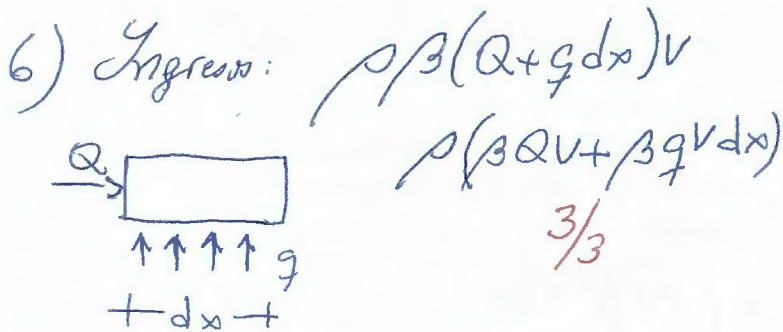 6) Ingreso: ρβ(Q+qdx)V
ρ(βQV+βqVdx)
3/3
Q
q
dx